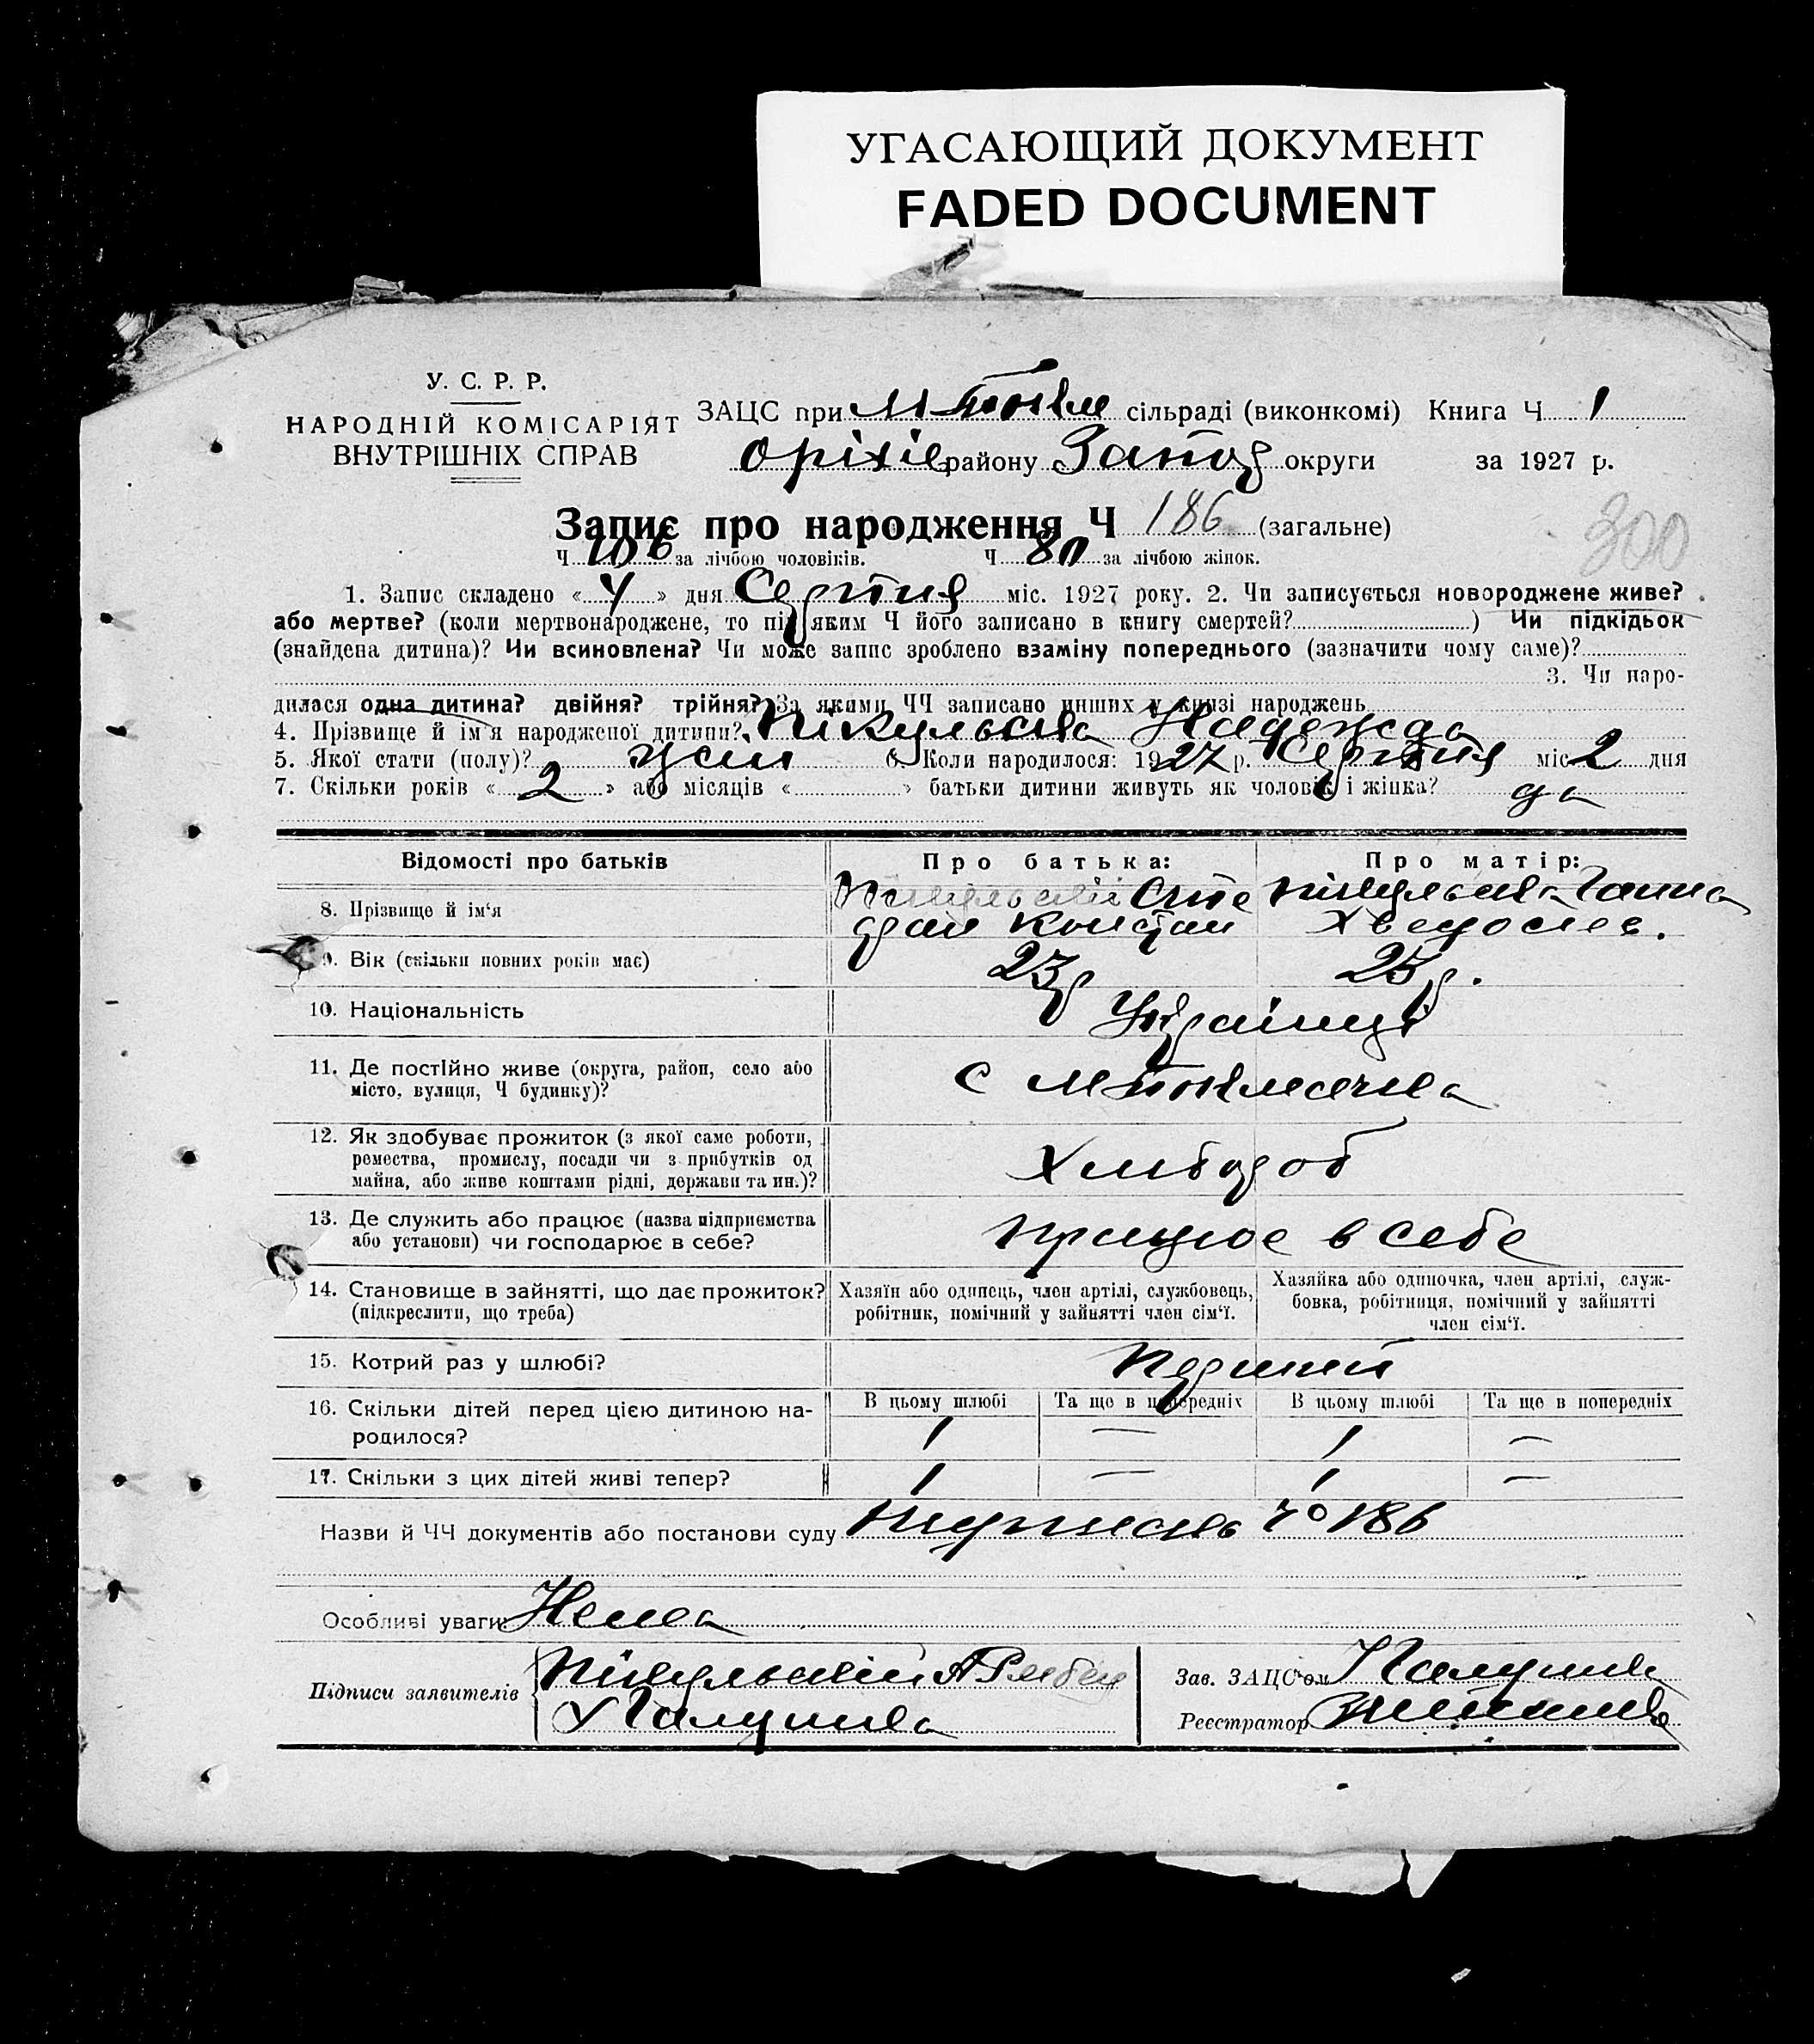 УГАСАЮЩИЙ ДОКУМЕНТ
FADED DOCUMENT
У. С. Р. Р.
НАРОДНІЙ КОМІСАРІЯТ
ВНУТРІШНІХ СПРАВ
ЗАЦС при М Токм сільраді (виконкомі) Книга Ч 1
Оріхів району Запор округи за 1927 р.
Запис про народження Ч 186 (загальне)
300
Ч 106 за лічбою чоловіків. Ч 80 за лічбою жінок.
1. Запис складено «4» дня Серпня міс. 1927 року. 2. Чи записується новороджене живе?
або мертве? (коли мертвонароджене, то під яким Ч його записано в книгу смертей? ) Чи підкідьок
(знайдена дитина)? Чи всиновлена? Чи може запис зроблено взаміну попереднього (зазначити чому саме)?
3. Чи наро-
дилася одна дитина? двійня? трійня? За якими ЧЧ записано инших у книзі народжень
4. Прізвище й ім'я народженої дитини? Пікульська Надежда
5. Якої стати (полу)? жін 6. Коли народилося: 1927 р. Серпня міс 2 дня
7. Скільки років «2» або місяців « » батьки дитини живуть як чоловік і жінка? да
Відомості про батьків Про батька: Про матір:
8. Прізвище й ім'я Пікульській Пікульська Ганна
9. Вік (скільки повних років має) 23р 23р.
10. Національність Українці
11. Де постійно живе (округа, район, село або
місто, вулиця, Ч будинку)?
с М Токмачка
12. Як здобуває прожиток (з якої саме роботи,
ремества, промислу, посади чи з прибутків од
майна, або живе коштами рідні, держави та ин.)?
Хлібороб
13. Де служить або працює (назва підприємства
або установи) чи господарює в себе?
працює в себе
14. Становище в зайнятті, що дає прожиток?
(підкреслити, що треба)
Хазяїн або одинець, член артілі, службовець,
робітник, помічний у зайнятті член сім'ї.
Хазяйка або одиночка, член артілі, служ-
бовка, робітниця, помічний у зайнятті
член сім'ї.
15. Котрий раз у шлюбі? Перший
16. Скільки дітей перед цією дитиною на-
родилося?
В цьому шлюбі Та ще в попередніх В цьому шлюбі Та ще в попередніх
1 — 1 —
17. Скільки з цих дітей живі тепер? 1 — 1 —
Назви й ЧЧ документів або постанови суду 186
Особливі уваги: Нема
Підписи заявителів Пікульській
Зав. ЗАЦС'ом
Реєстратор